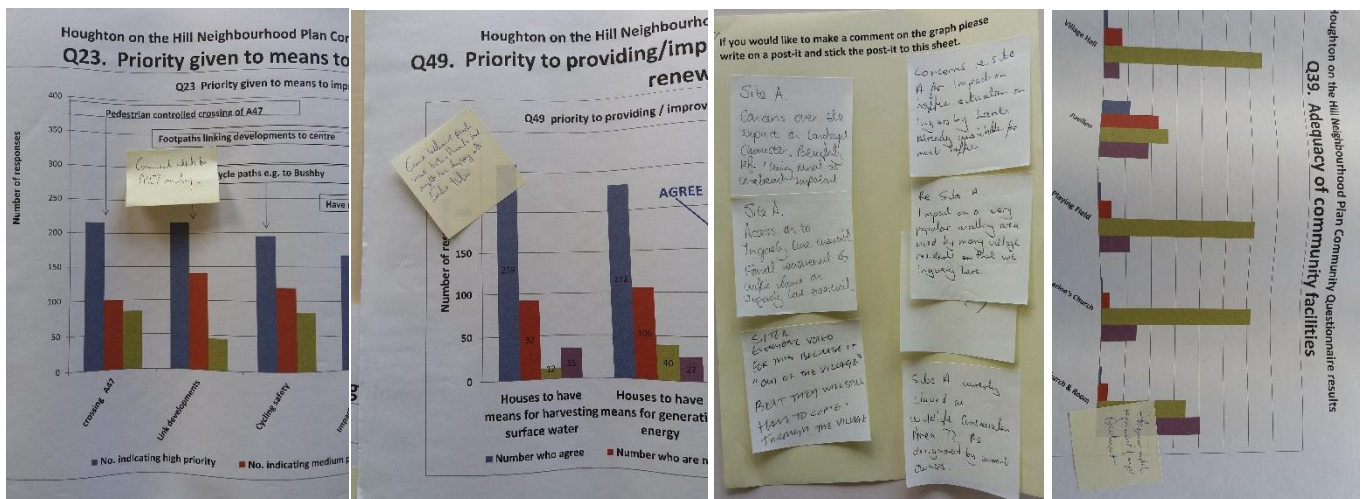 Houghton on the Hill Neighbourhood Plan Co
Q23. Priority given to means to
Q23 Priority given to means to imp
400
350
300
250
200
150
100
50
0
Number of responses
Pedestrian controlled crossing of A47
Footpaths linking developments to centre
cycle paths e.g. to Bushby
Have
crossing A47
Link developments
Cycling safety
No. indicating high priority
No. indicating medium p
Houghton on the Hill Neighbourho
Q49. Priority to providing/imp
renew
Q49 priority to providing / improv
AGREE
Number of re
150
100
50
0
259
92
12
35
232
106
40
27
Houses to have
means for harvesting
surface water
Houses to have
means for generati
energy
Number who agree
Number who are n
If you would like to make a comment on the graph please
write on a post-it and stick the post-it to this sheet.
Site A.
Concerns over
impact on landscape
character.
Site A.
Access on to
Ingarsby Lane
SITE A
EVERYONE VOTED
FOR THIS BECAUSE IT
"OUT OF THE VILLAGE"
BUT THEY WILL STILL
HAVE TO COME
THROUGH THE VILLAGE
Concerns re site
A for impact on
traffic situation on
Ingarsby Lane
already unsuitable for
Re Site A
Impact on a very
popular walking area
used by many village
residents
Ingarsby Lane.
Site A currently
classed as
wildlife Conservation
Area ?? As
designated by current
owners.
Houghton on the Hill Neighbourhood Plan Community Questionnaire results
Q39. Adequacy of community
facilities
Village Hall
Pavilion
Playing Field
erine's Church
urch & Room